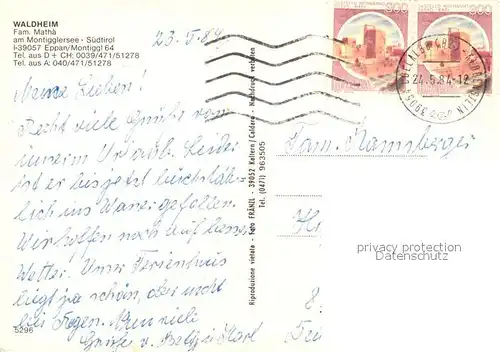 WALDHEIM
Fam. Mathà
am Montigglersee - Südtirol
I-39057 Eppan/Montiggl 64
Tel. aus D + CH: 0039/471/51278
Tel. aus A: 040/471/51278
23.5.84
300
300
24.5.84-12
39052
Meine Lieben!
Recht viele Grüße von
unserem Urlaub. Leider
ist er bis jetzt buchstäb-
lich ins Wasser gefallen.
Wir hoffen noch auf besser
Wetter. Unser Ferienhaus
liegt ja schön, aber nicht
bei Regen. Nun viele
Grüße v.
Fam. Ramsberger
Riproduzione vietata - Foto FRÄNZL - 39052 Kaltern/Caldaro - Nachdruck verboten
Tel. (0471) 963505
privacy protection
Datenschutz
5296